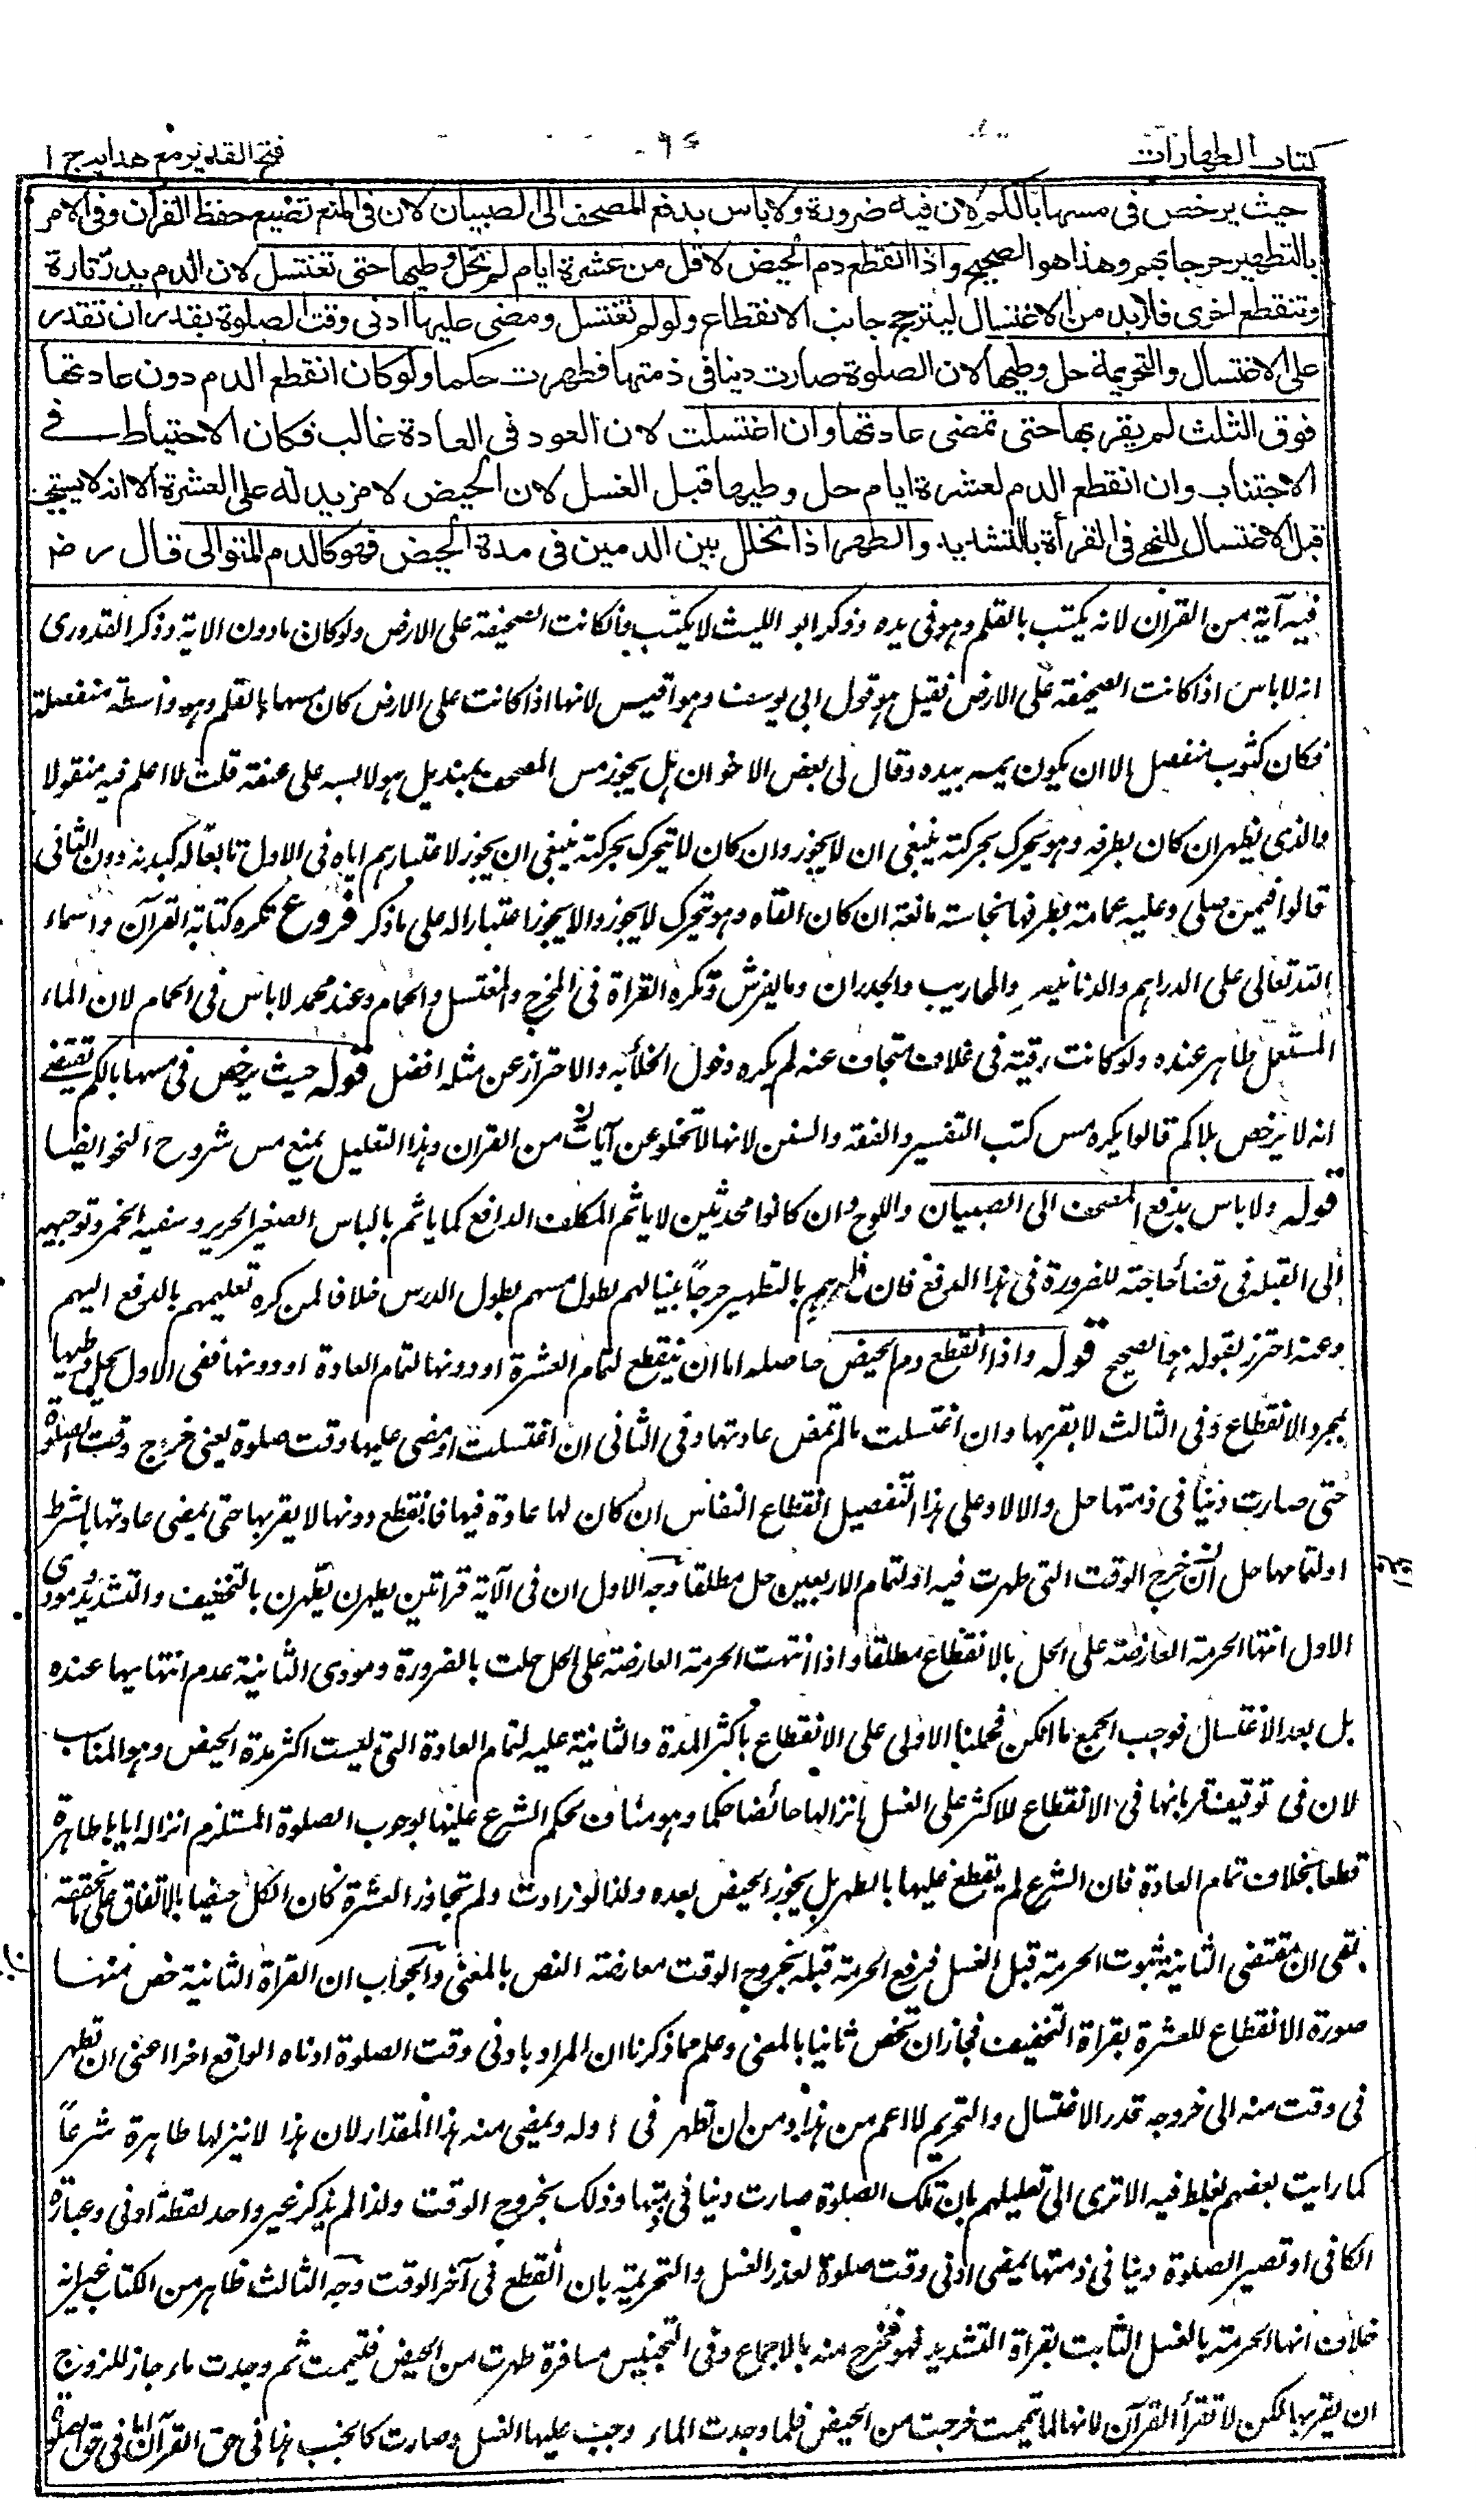 كتاب الطهارات
٩٤
فتح القدير مع هدايه ج ١
حيث يرخص فى مسها بالكم لان فيه ضرورة ولا باس بدفع المصحف الى الصبيان لان فى المنع تضييع حفظ القرآن وفى الامر
بالتطهير حرجا بهم وهذا هو الصحيح واذا انقطع دم الحيض لاقل من عشرة ايام لم تحل وطيها حتى تغتسل لان الدم يدر تارة
وتنقطع اخرى فلابد من الاغتسال ليترجح جانب الانقطاع ولو لم تغتسل ومضى عليها ادنى وقت الصلوة بقدر ان تقدر
على الاغتسال والتحريمة حل وطيها لان الصلوة صارت دينا فى ذمتها فطهرت حكما ولو كان انقطع الدم دون عادتها
فوق الثلث لم يقربها حتى تمضى عادتها وان اغتسلت لان العود فى العادة غالب فكان الاحتياط فے
الاجتناب وان انقطع الدم لعشرة ايام حل وطيها قبل الغسل لان الحيض لا مزيد له على العشرة الا انه لا يستحب
قبل الاغتسال للنهے فى القرأة بالتشديد والطهر اذا تخلل بين الدمين فى مدة الحيض فهو كالدم المتوالى قال رض
فيه آية من القران لانه يكتب بالقلم وهو فى يده وذكر ابو الليث لا يكتب وان كانت الصحيفة على الارض ولو كان ما دون الاية وذكر القدورى
انه لا باس اذا كانت الصحيفة على الارض فقيل هو قول ابى يوسف وهو اقيس لانها اذا كانت على الارض كان مسها بالقلم وهو واسطة منفصلة
فكان كثوب منفصل الا ان يكون يمسه بيده وقال لى بعض الاخوان هل يجوز مس المصحف بمنديل هو لابسه على عنقه قلت لا اعلم فيه منقولا
والذى يظهر ان كان بطرفه وهو يتحرك بحركته ينبغى ان لا يجوز وان كان لا يتحرك بحركته ينبغى ان يجوز لاعتبارهم اياه فى الاول تابعا له كبدنه دون الثانى
قالوا فيمن صلى وعليه عمامة بطرفها نجاسة مانعة ان كان القاه وهو يتحرك لا يجوز والا يجوز اعتبارا له على ما ذكر فروع تكره كتابة القرآن واسماء
الله تعالى على الدراهم والدنانير والمحاريب والجدران وما يفرش وتكره القراة فى المخرج والمغتسل والحمام وعند محمد لا باس فى الحمام لان الماء
المستعمل طاهر عنده ولو كانت رقية فى غلاف متجاف عنه لم يكره دخول الخلأ به والاحتراز عن مثله افضل قوله حيث يرخص فى مسها بالكم تقتضے
انه لا يرخص بلا كم قالوا يكره مس كتب التفسير والفقه والسنن لانها لا تخلو عن آيات من القران وهذا التعليل يمنع مس شروح النحو ايضا
قوله ولا باس بدفع المصحف الى الصبيان واللوح وان كانوا محدثين لا ياثم المكلف الدافع كما ياثم بالباس الصغير الحرير وسقيه الخمر وتوجيهه
الى القبلة فى قضأ حاجته للضرورة فى هذا الدفع فان فى امرهم بالتطهير حرجاً بينا لهم لطول مسهم بطول الدرس خلافا لمن كره تعليمهم بالدفع اليهم
وعنه احترز بقوله هو الصحيح قوله واذا انقطع دم الحيض حاصله اما ان ينقطع لتمام العشرة او دونها لتمام العادة او دونها ففى الاول يحل وطيها
بمجرد الانقطاع وفى الثالث لا يقربها وان اغتسلت ما لم تمض عادتها وفى الثانى ان اغتسلت او مضى عليها وقت صلوة يعنى خرج وقت الصلوة
حتى صارت دينا فى ذمتها حل والا لا وعلى هذا التفصيل انقطاع النفاس ان كان لها عادة فيها فانقطع دونها لا يقربها حتى يمضى عادتها بالشرط
او لتمامها حل ان خرج الوقت التى طهرت فيه او لتمام الاربعين حل مطلقا وجه الاول ان فى الآية قراتين يطهرن يطّهرن بالتخفيف والتشديد ومودى
الاول انتها الحرمة العارضة على الحل بالانقطاع مطلقا واذا انتهت الحرمة العارضة على الحل حلت بالضرورة ومودى الثانية عدم انتهايها عنده
بل بعد الاغتسال فوجب الجمع ما امكن فحملنا الاولى على الانقطاع باكثر المدة والثانية عليه لتمام العادة التى ليست اكثر مدة الحيض وهو المناسب
لان فى توقيف قربانها فى الانقطاع للاكثر على الغسل انزالها حائضا حكما وهو مناف لحكم الشرع عليها بوجوب الصلوة المستلزم انزاله اياها طاهرة
قطعا بخلاف تمام العادة فان الشرع لم يقطع عليها بالطهر بل يجوز الحيض بعده ولذا لو زادت ولم تجاوز العشرة كان الكل حيضا بالاتفاق على ما نحققه
بقى ان مقتضى الثانية ثبوت الحرمة قبل الغسل فرفع الحرمة قبله بخروج الوقت معارضة النص بالمعنى والجواب ان القراة الثانية خص منها
صورة الانقطاع للعشرة بقراة التخفيف فجاز ان تخص ثانيا بالمعنى وعلم مما ذكرنا ان المراد بادنى وقت الصلوة ادناه الواقع اخرا اعنى ان تطهر
فى وقت منه الى خروجه قدر الاغتسال والتحريم لا اعم من هذا ومن ان تطهر فى اوله ويمضى منه هذا المقدار لان هذا لا ينزلها طاهرة شرعاً
كما رايت بعضهم يغلط فيه الا ترى الى تعليلهم بان تلك الصلوة صارت دينا فى ذمتها وذلك بخروج الوقت ولذا لم يذكر غير واحد لفظة ادنى وعبارة
الكافى او تصير الصلوة دينا فى ذمتها بمضى ادنى وقت صلوة بقدر الغسل والتحريمة بان انقطع فى آخر الوقت وجه الثالث ظاهر من الكتاب غير انه
خلاف انها الحرمة بالغسل الثابت بقراة التشديد فهو مخرج منه بالاجماع وفى التجنيس مسافرة طهرت من الحيض فتيممت ثم وجدت ماء جاز للزوج
ان يقربها لكن لا تقرأ القرآن لانها لما تيممت خرجت من الحيض فلما وجدت الماء وجب عليها الغسل وصارت كالجنب هذا فى حق القرآن اما فى حق الصلوة